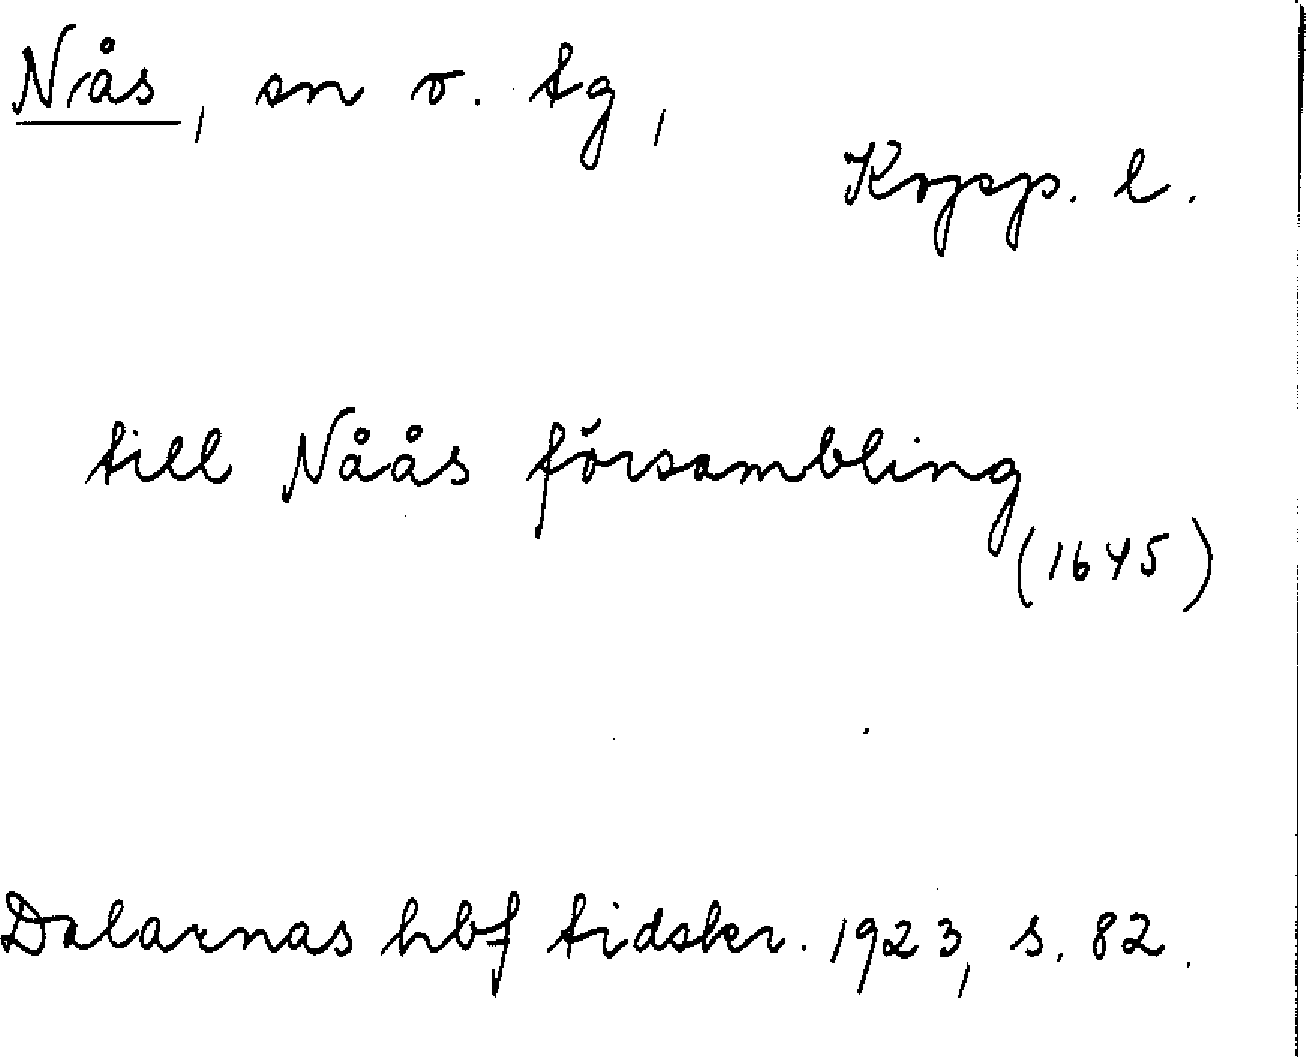 Nås, sn o. tg,
Kopp. l.
till Nåås försambling
(1645)
Dalarnas hbf tidskr. 1923, s. 82.